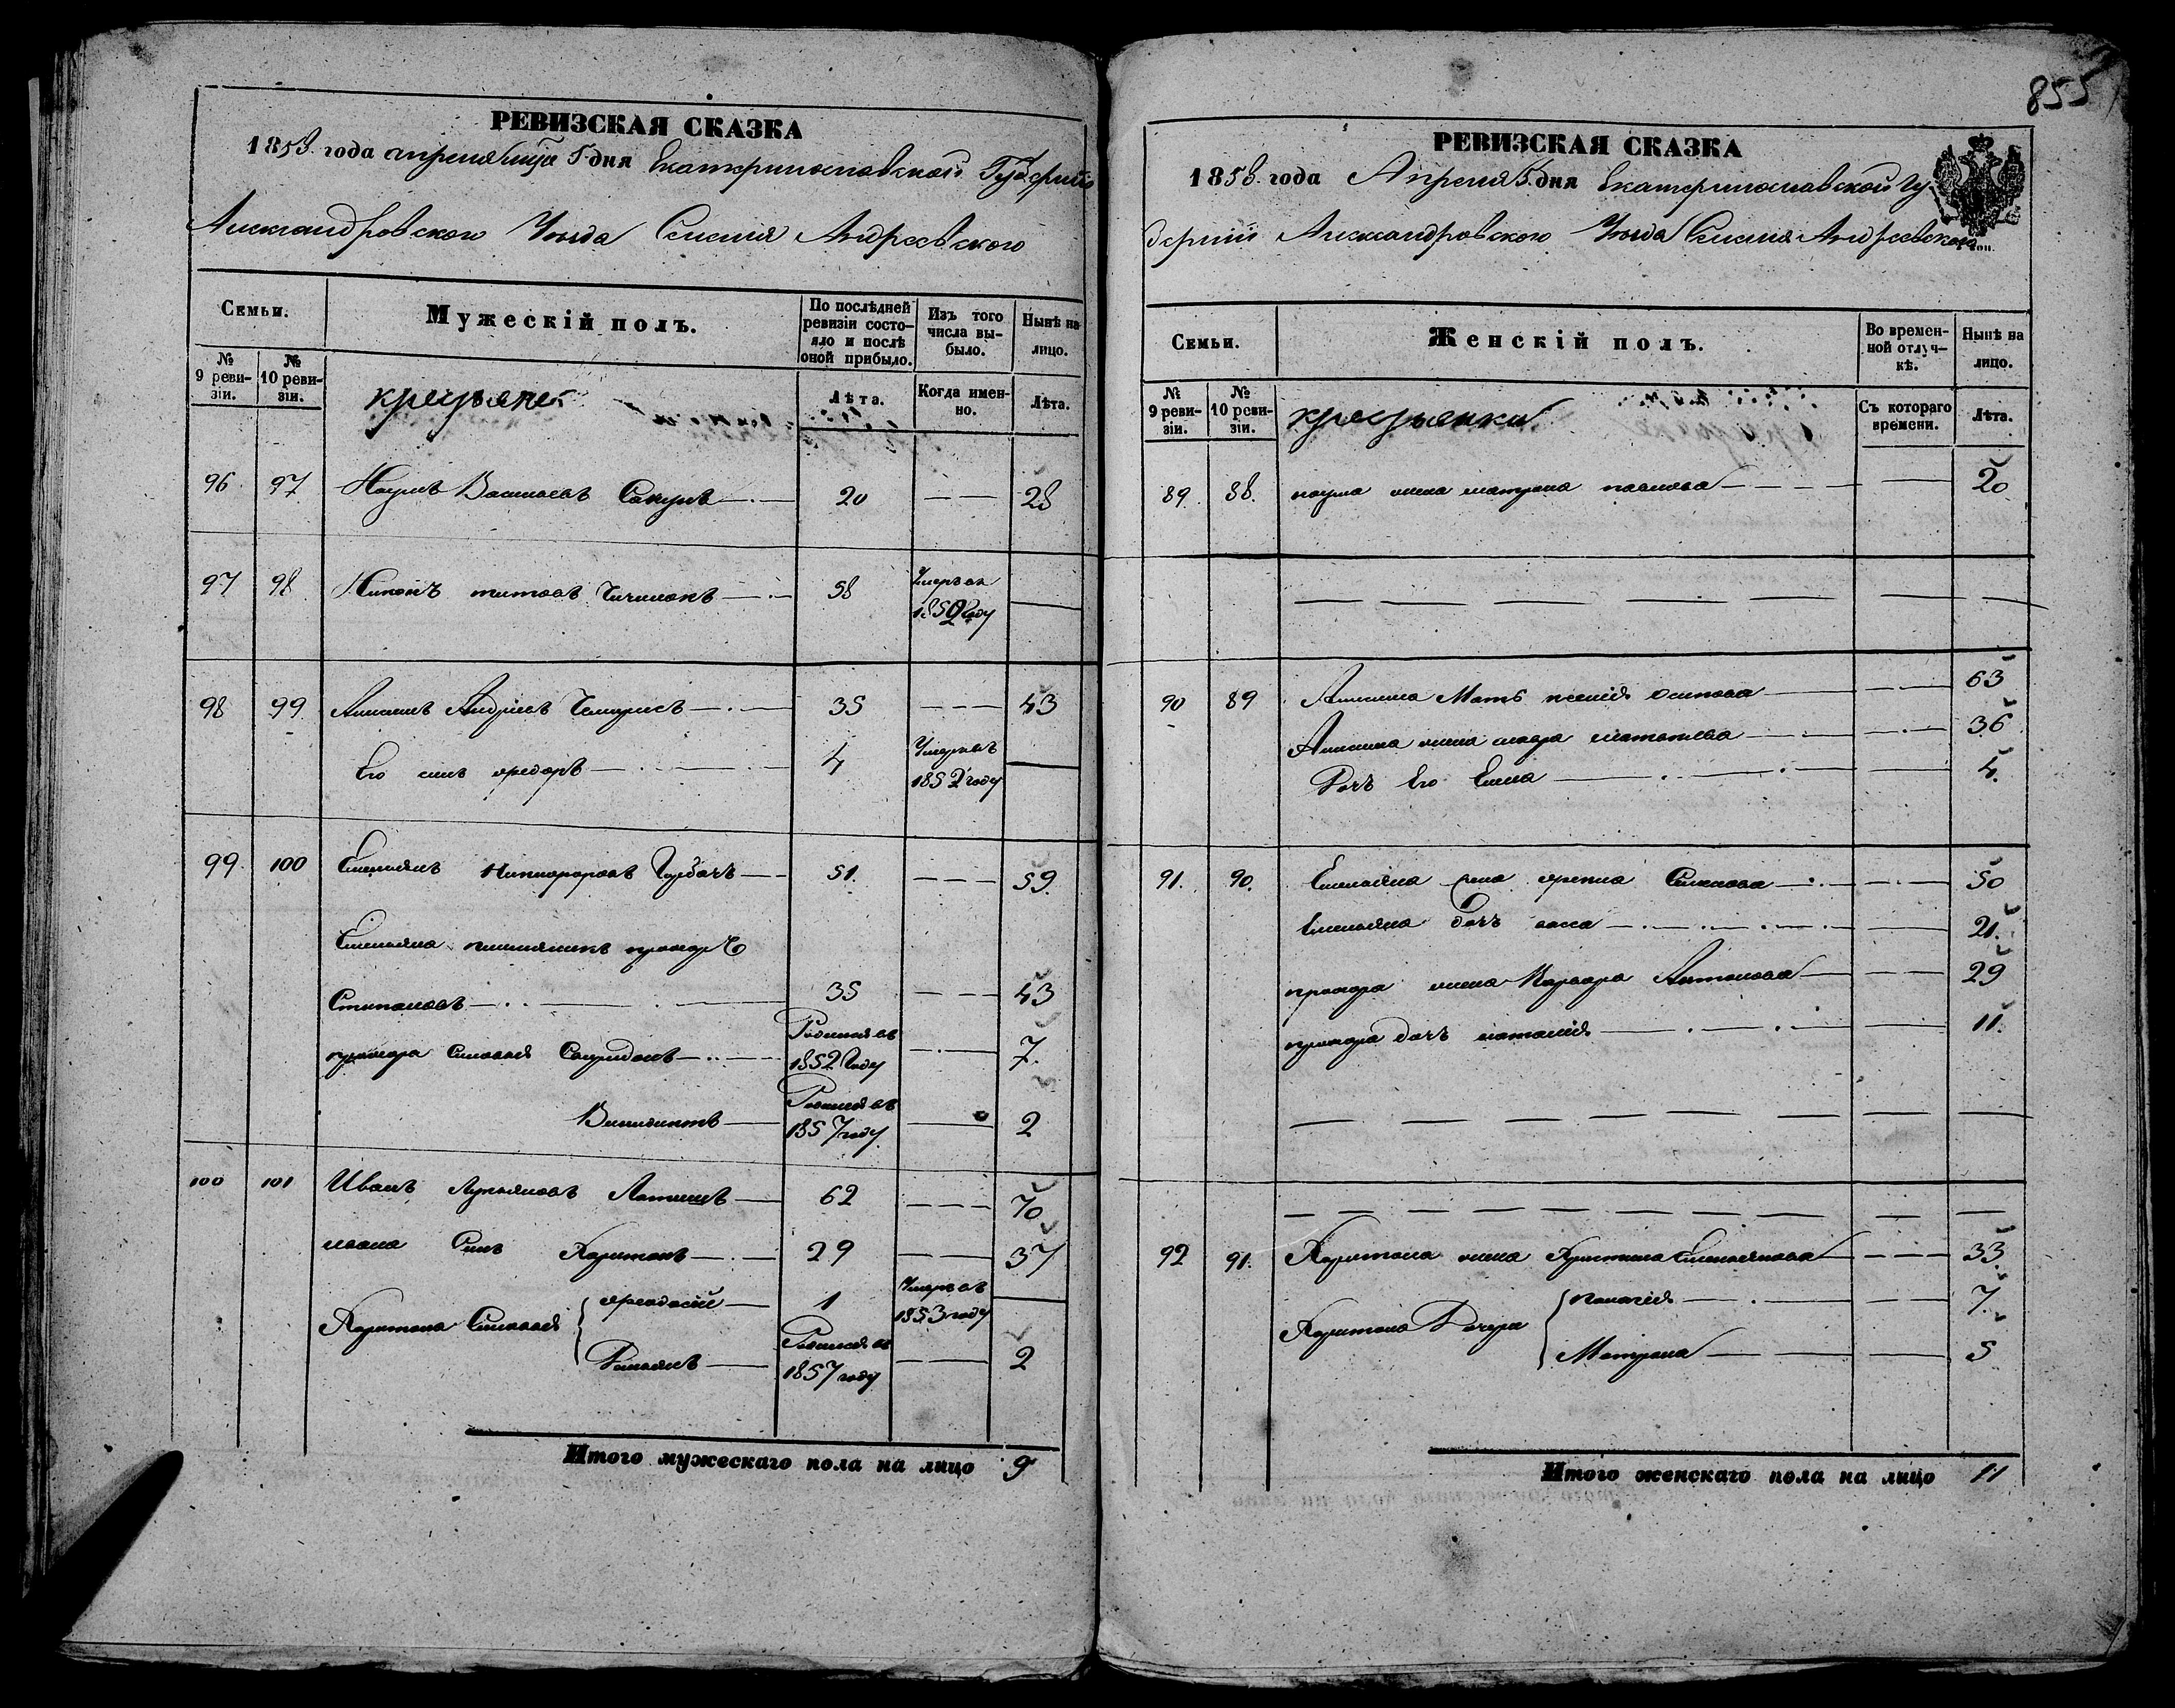 РЕВИЗСКАЯ СКАЗКА
1858 года апреля мца 5 дня Екатеринославской Губернии
Александровского Уезда Селения Андреевского
Семьи.
Мужескій полъ.
По послѣдней ревизіи состояло и послѣ оной прибыло.
Изъ того числа выбыло.
Нынѣ на лицо.
№ 9 ревизіи.
№ 10 ревизіи.
крестьяне
Лѣта.
Когда именно.
Лѣта.
96 97 Наумъ Васильевъ 20 28
97 98 Никонъ титовъ 58 Умеръ в 1850 году
98 99 Андреевъ 35 43
Его сынъ федоръ 4 Умеръ въ 1852 году
99 100 Емельянъ Никифоровъ Горбачъ 51 59
Емельяна племянникъ прокоръ
Степановъ 35 43
прокора Сыновья Родился въ 1852 году 7
Родился въ 1857 году 2
100 101 Иванъ Лукьяновъ 62 70
ивана Сынъ Харитонъ 29 37
Харитона Сыновья феодосий 1 Умеръ въ 1853 году
Родился въ 1857 году 2
Итого мужескаго пола на лицо 9
855
РЕВИЗСКАЯ СКАЗКА
1858 года Апреля 5 дня Екатеринославской Гу
бернии Александровского Уезда Селения Андреевского
Семьи.
Женскій полъ.
Во временной отлучкѣ.
Нынѣ на лицо.
№ 9 ревизіи.
№ 10 ревизіи.
крестьянки
Съ котораго времени.
Лѣта.
89 88 наума жена матрона павлова 20
90 89 Мать ксения осипова 63
жена 36
Дочь Его Елена 4
91 90 Емельяна жена Семенова 50
Емельяна дочь 21
прокора жена Варвара Антонова 29
прокора дочь наталия 11
92 91 Харитона жена Христина Емельянова 33
Харитона Дочери пелагия 7
Матрона 5
Итого женскаго пола на лицо 11